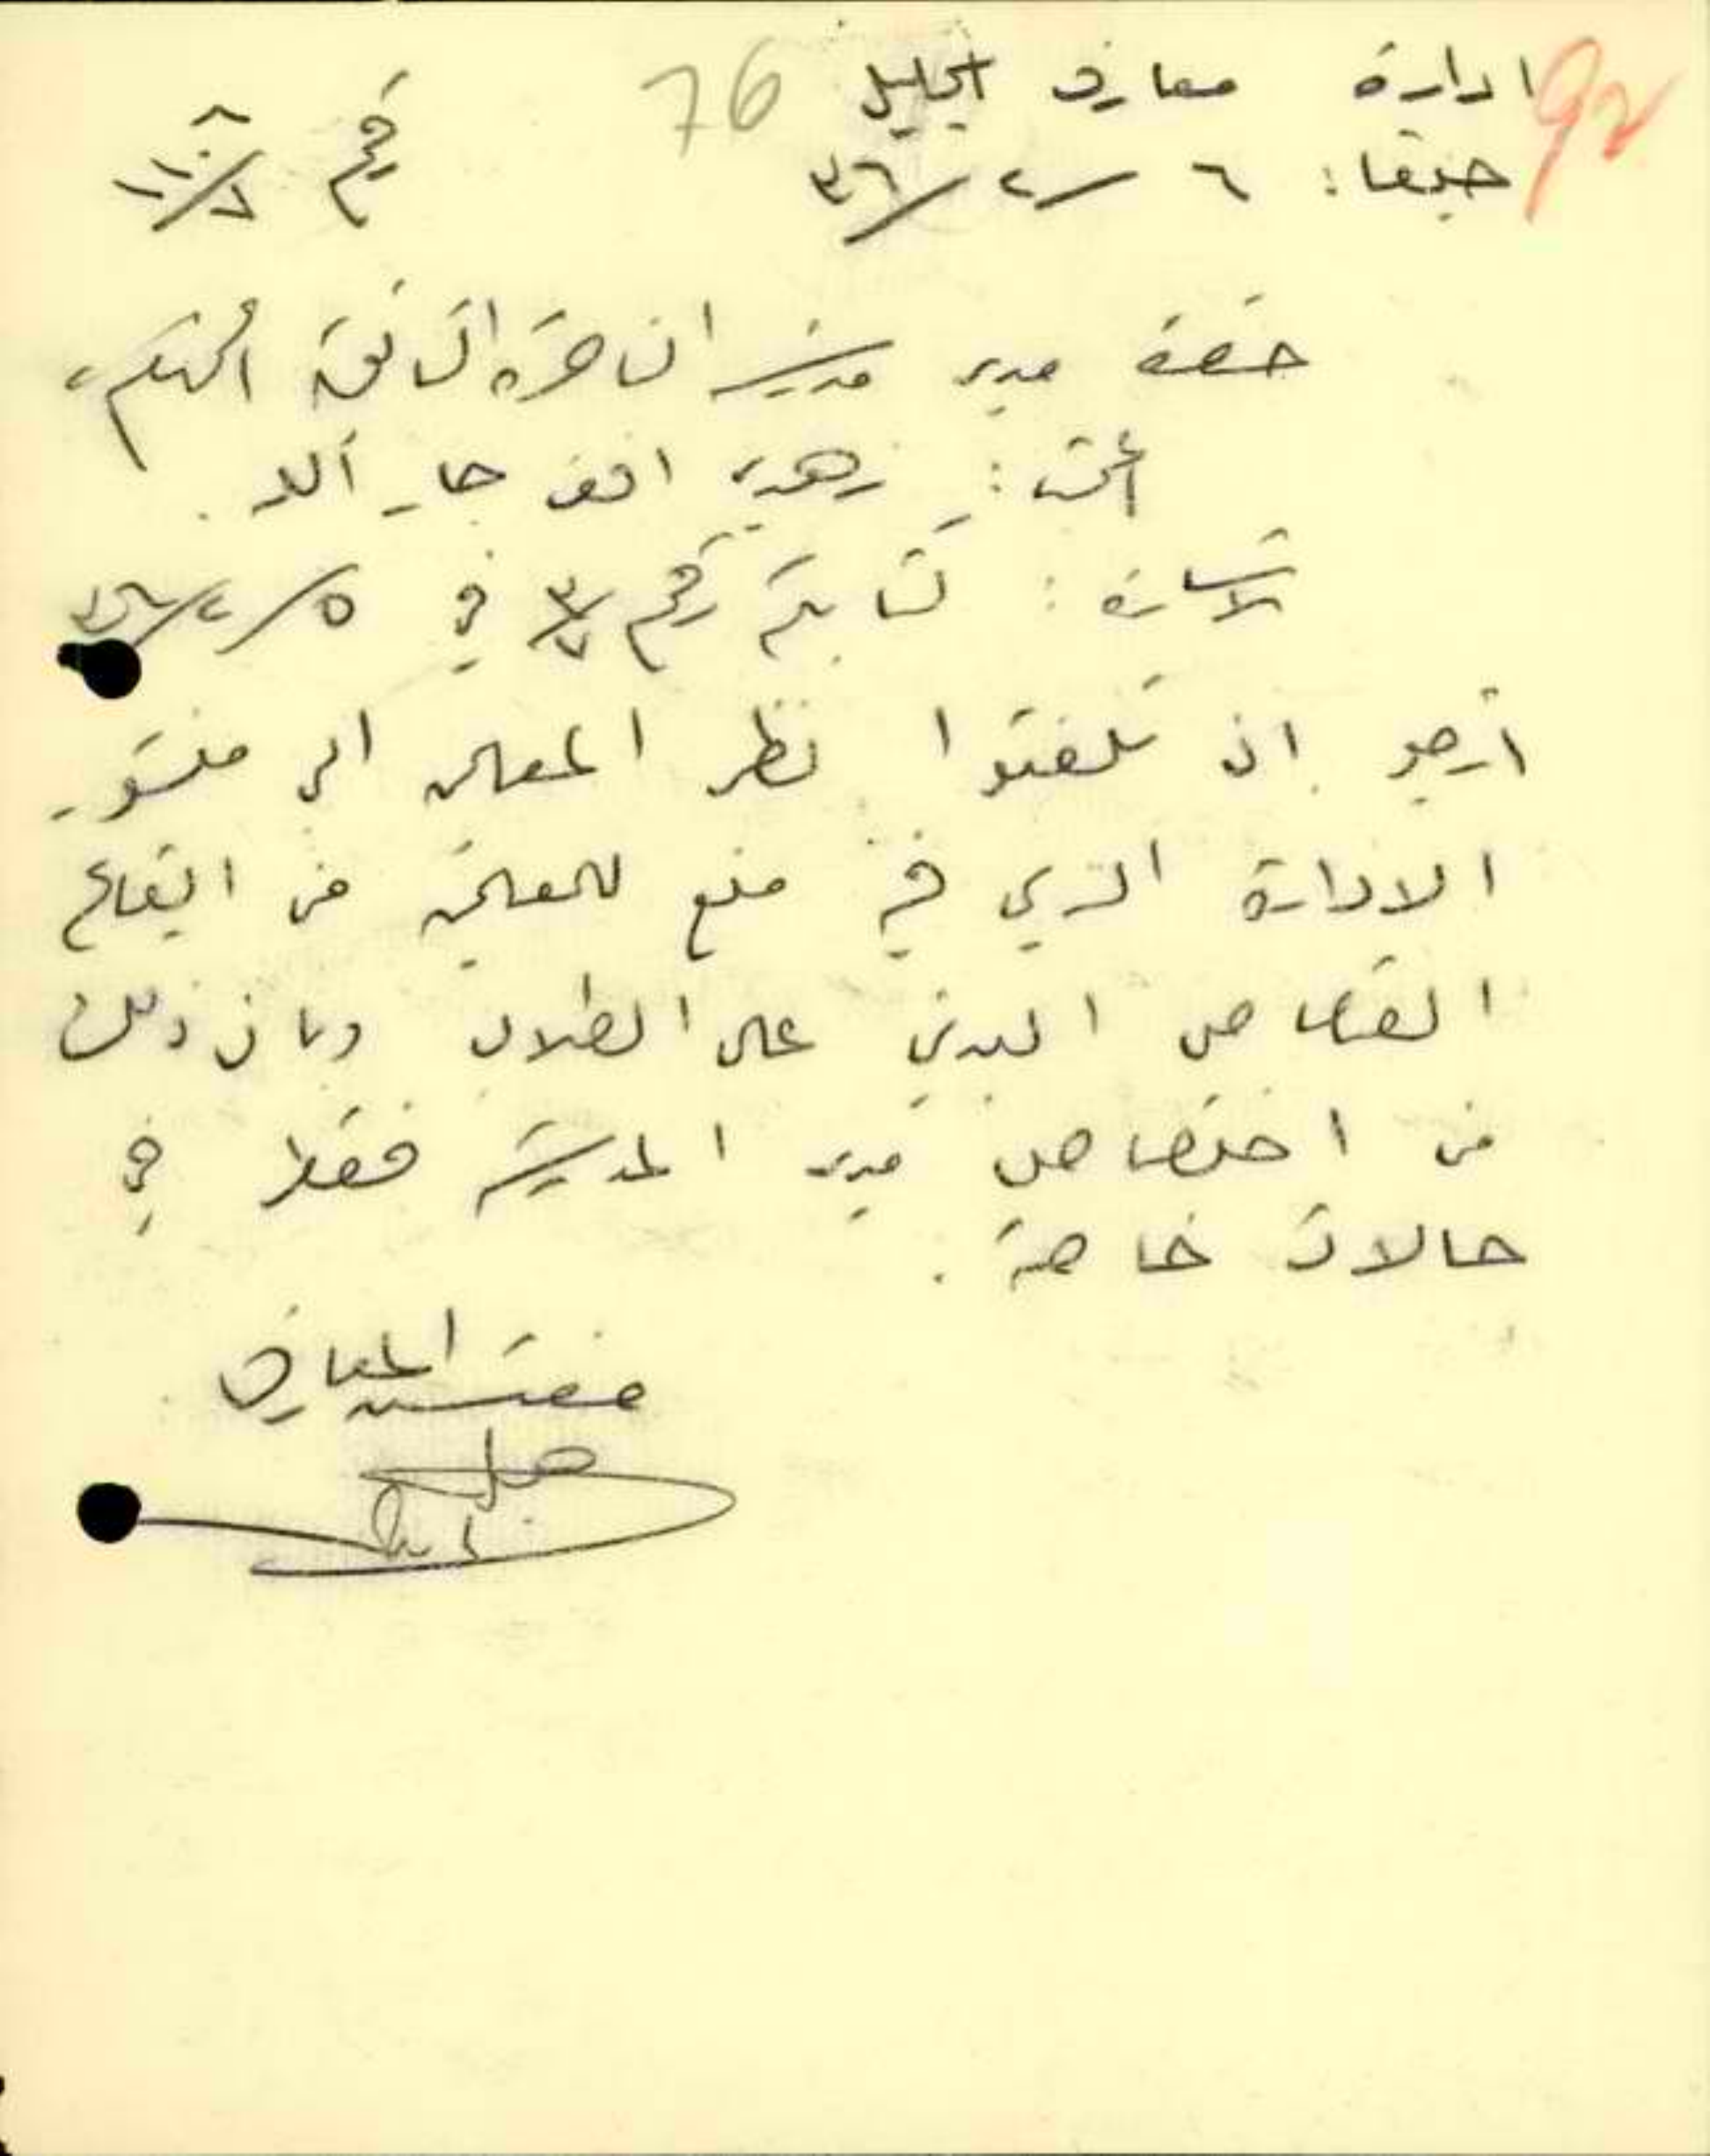 ادارة معارف الجليل 76 92
حيفا : ٦ / ٢ / ٣٦ رقم ١١٠٨/٧
حضرة مدير مدرسة الناصرة الثانوية المحترم،
البحث : زهدي افندي جار الله .
الاشارة : كتابكم رقم ٣/٧ في ٥ / ٢ / ٣٦
أرجو ان تلفتوا نظر المعلمين الى منشور
الادارة الذي فيه منع للمعلمين من ايقاع
القصاص البدني على الطلاب وبان ذلك
من اختصاص مدير المدرسة فقط في
حالات خاصة .
مفتش المعارف